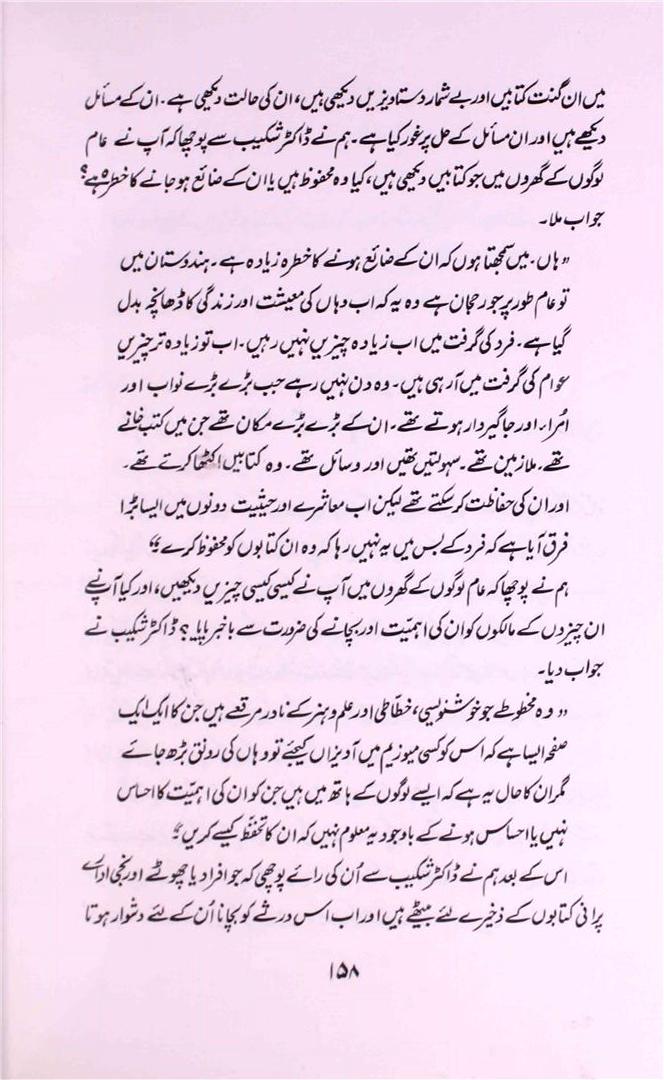 میں ان گنت کتابیں اور بے شمار دستاویزیں دیکھی ہیں، ان کی حالت دیکھی ہے۔ ان کے مسائل
دیکھے ہیں اور ان مسائل کے حل پر غور کیا ہے۔ ہم نے ڈاکٹر شکیب سے پوچھا کہ آپ نے عام
لوگوں کے گھروں میں جو کتابیں دیکھی ہیں، کیا وہ محفوظ ہیں یا ان کے ضائع ہو جانے کا خطرہ ہے؟
جواب ملا۔
"ہاں۔ میں سمجھتا ہوں کہ ان کے ضائع ہونے کا خطرہ زیادہ ہے۔ ہندوستان میں
تو عام طور پر جو رجحان ہے وہ یہ کہ اب وہاں کی معیشت اور زندگی کا ڈھانچہ بدل
گیا ہے۔ فرد کی گرفت میں اب زیادہ چیزیں نہیں رہیں۔ اب تو زیادہ تر چیزیں
عوام کی گرفت میں آ رہی ہیں۔ وہ دن نہیں رہے جب بڑے بڑے نواب اور
اُمراء اور جاگیردار ہوتے تھے۔ ان کے بڑے بڑے مکان تھے جن میں کتب خانے
تھے۔ ملازمین تھے۔ سہولتیں تھیں اور وسائل تھے۔ وہ کتابیں اکٹھا کرتے تھے۔
اور ان کی حفاظت کر سکتے تھے لیکن اب معاشرے اور حیثیت دونوں میں ایسا بڑا
فرق آیا ہے کہ فرد کے بس میں یہ نہیں رہا کہ وہ ان کتابوں کو محفوظ کرے۔"
ہم نے پوچھا کہ عام لوگوں کے گھروں میں آپ نے کیسی کیسی چیزیں دیکھیں، اور کیا آپ نے
ان چیزوں کے مالکوں کو ان کی اہمیّت اور بچانے کی ضرورت سے باخبر پایا؟ ڈاکٹر شکیب نے
جواب دیا۔
"وہ مخطوطے جو خوشنویسی، خطّاطی اور علم و ہنر کے نادر مرقعے ہیں جن کا ایک ایک
صفحہ ایسا ہے کہ اس کو کسی میوزیم میں آویزاں کیجئے تو وہاں کی رونق بڑھ جائے
مگر ان کا حال یہ ہے کہ ایسے لوگوں کے ہاتھ میں ہیں جن کو ان کی اہمیّت کا احساس
نہیں یا احساس ہونے کے باوجود یہ معلوم نہیں کہ ان کا تحفّظ کیسے کریں۔"
اس کے بعد ہم نے ڈاکٹر شکیب سے اُن کی رائے پوچھی کہ جو افراد یا چھوٹے اور نجی ادارے
پرانی کتابوں کے ذخیرے لئے بیٹھے ہیں اور اب اس ورثے کو بچانا اُن کے لئے دشوار ہوتا
۱۵۸